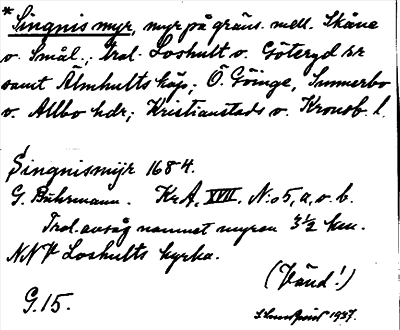 * Singnis myr, myr på gräns. mell. Skåne
o. Smål.; trol. Loshult o. Göteryd sr
samt Älmhults köp; Ö. Göinge, Sunnerbo
o. Allbo hdr; Kristianstads o. Kronob. l.
Singnismÿr 1684.
G. Buhrmann. KrA. XVII. N:o 5, a, o. b.
Trol. avsåg namnet myren 3½ km.
NNV Loshults kyrka.
(Vänd!)
G. 15.
1937.